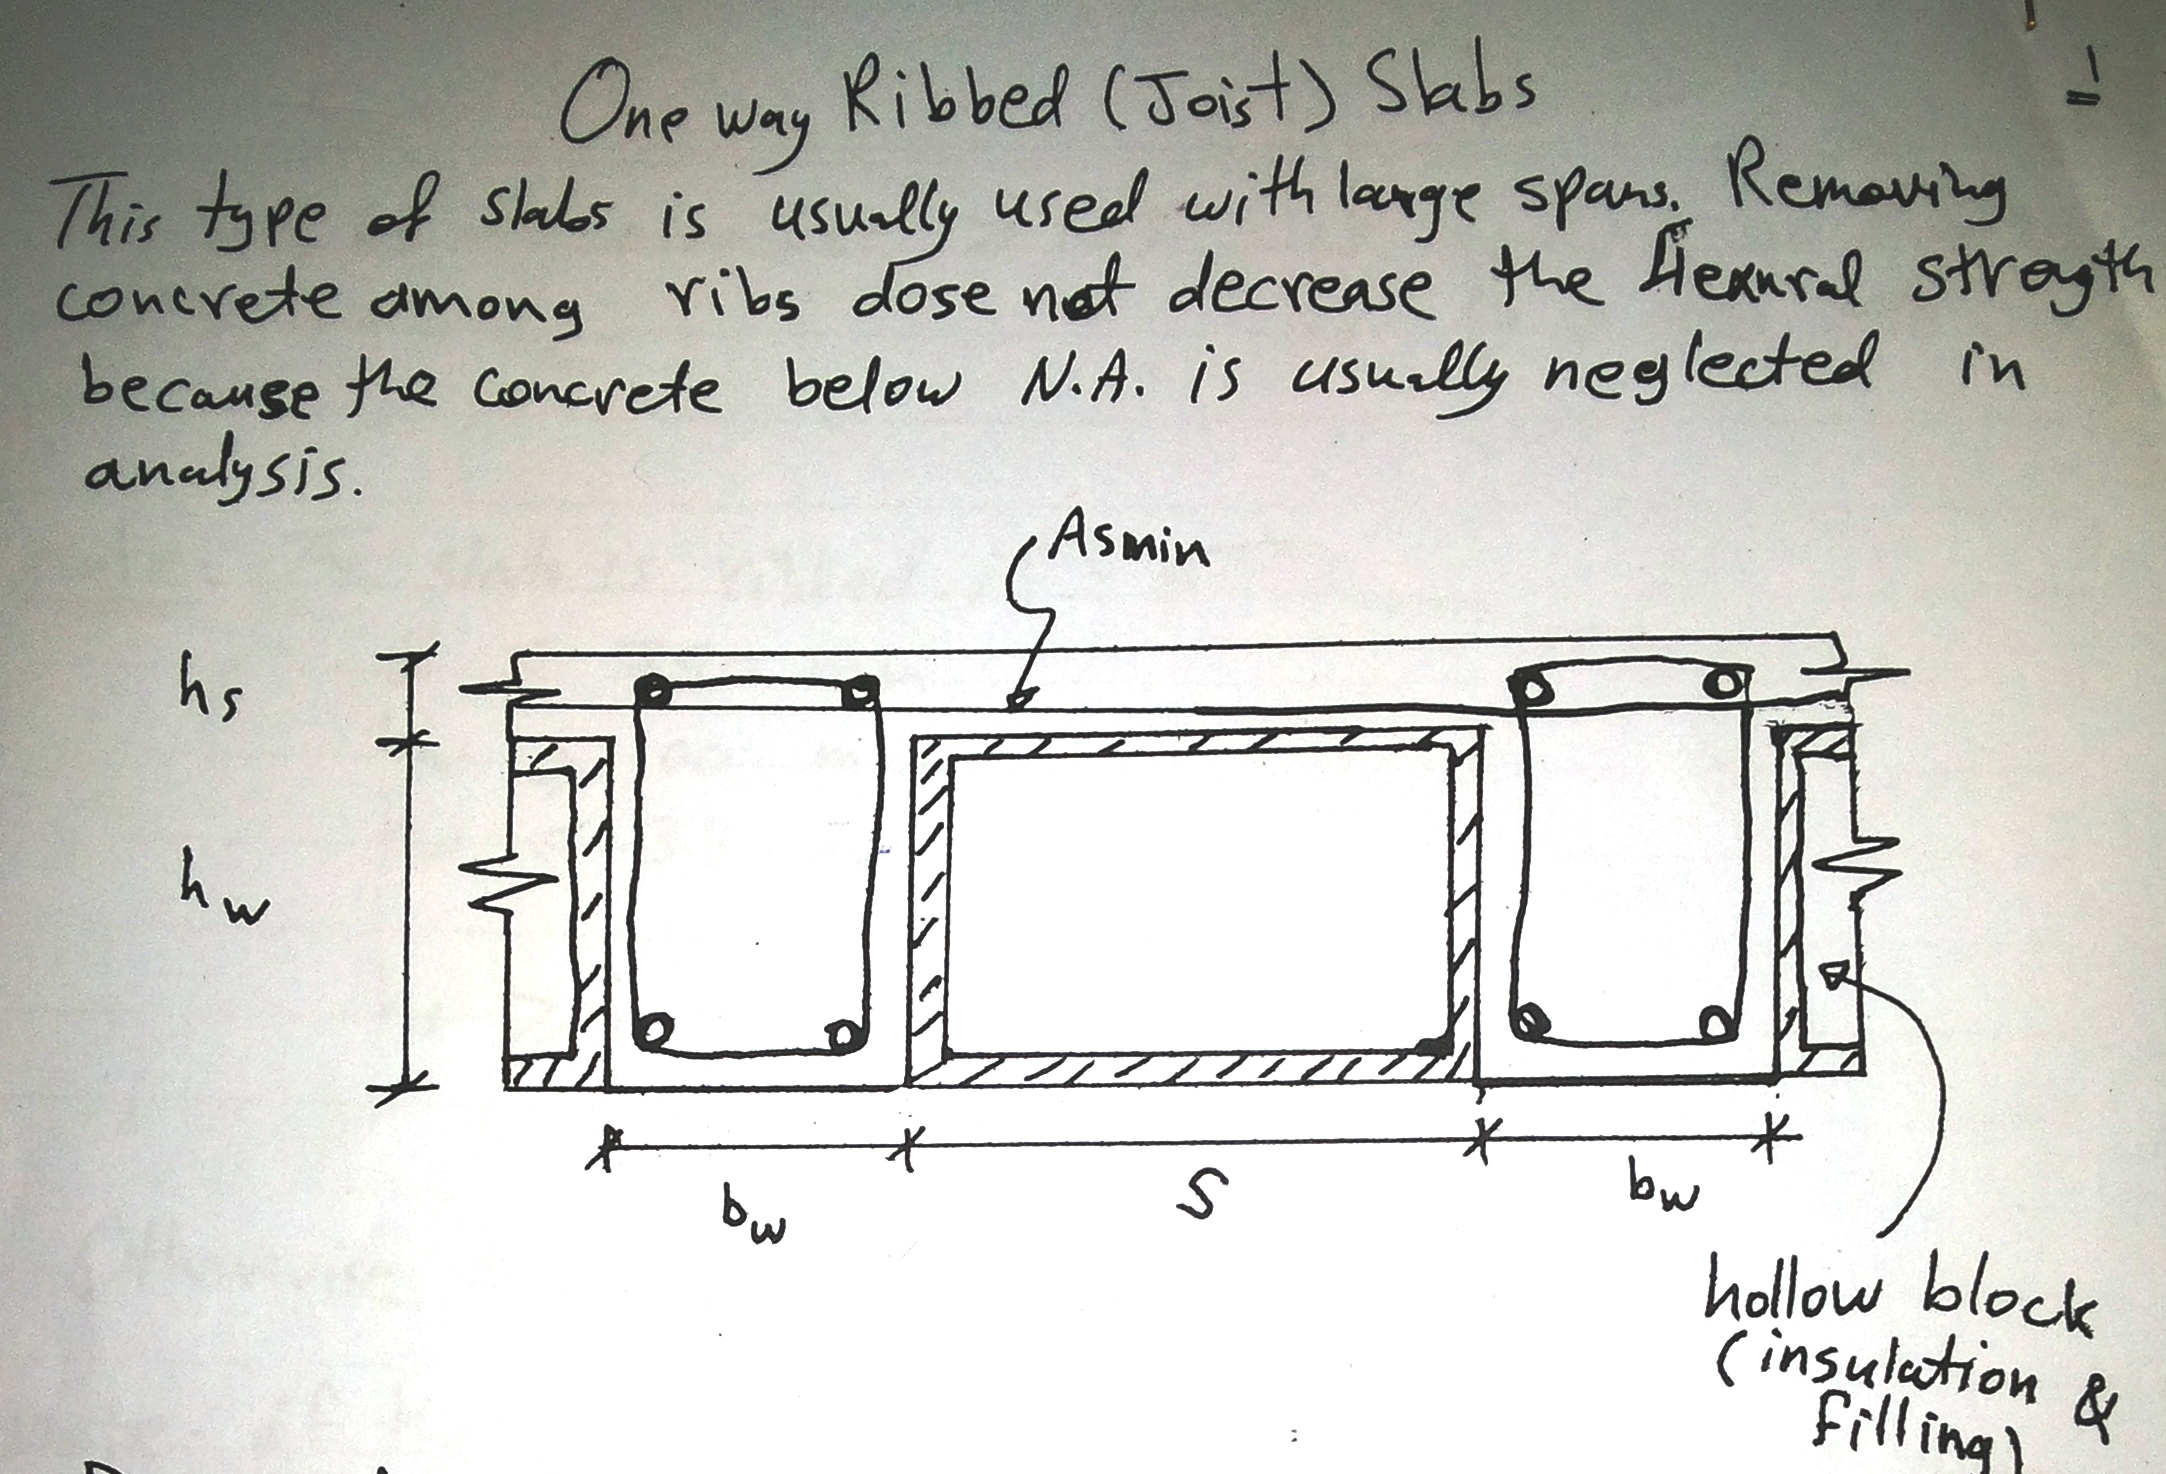 One way Ribbed (Joist) Slabs
1
This type of slabs is usually used with large spans. Removing
concrete among ribs dose not decrease the flexural strength
because the concrete below N.A. is usually neglected in
analysis.
Asmin
hs
hw
bw
S
bw
hollow block
(insulation &
filling)